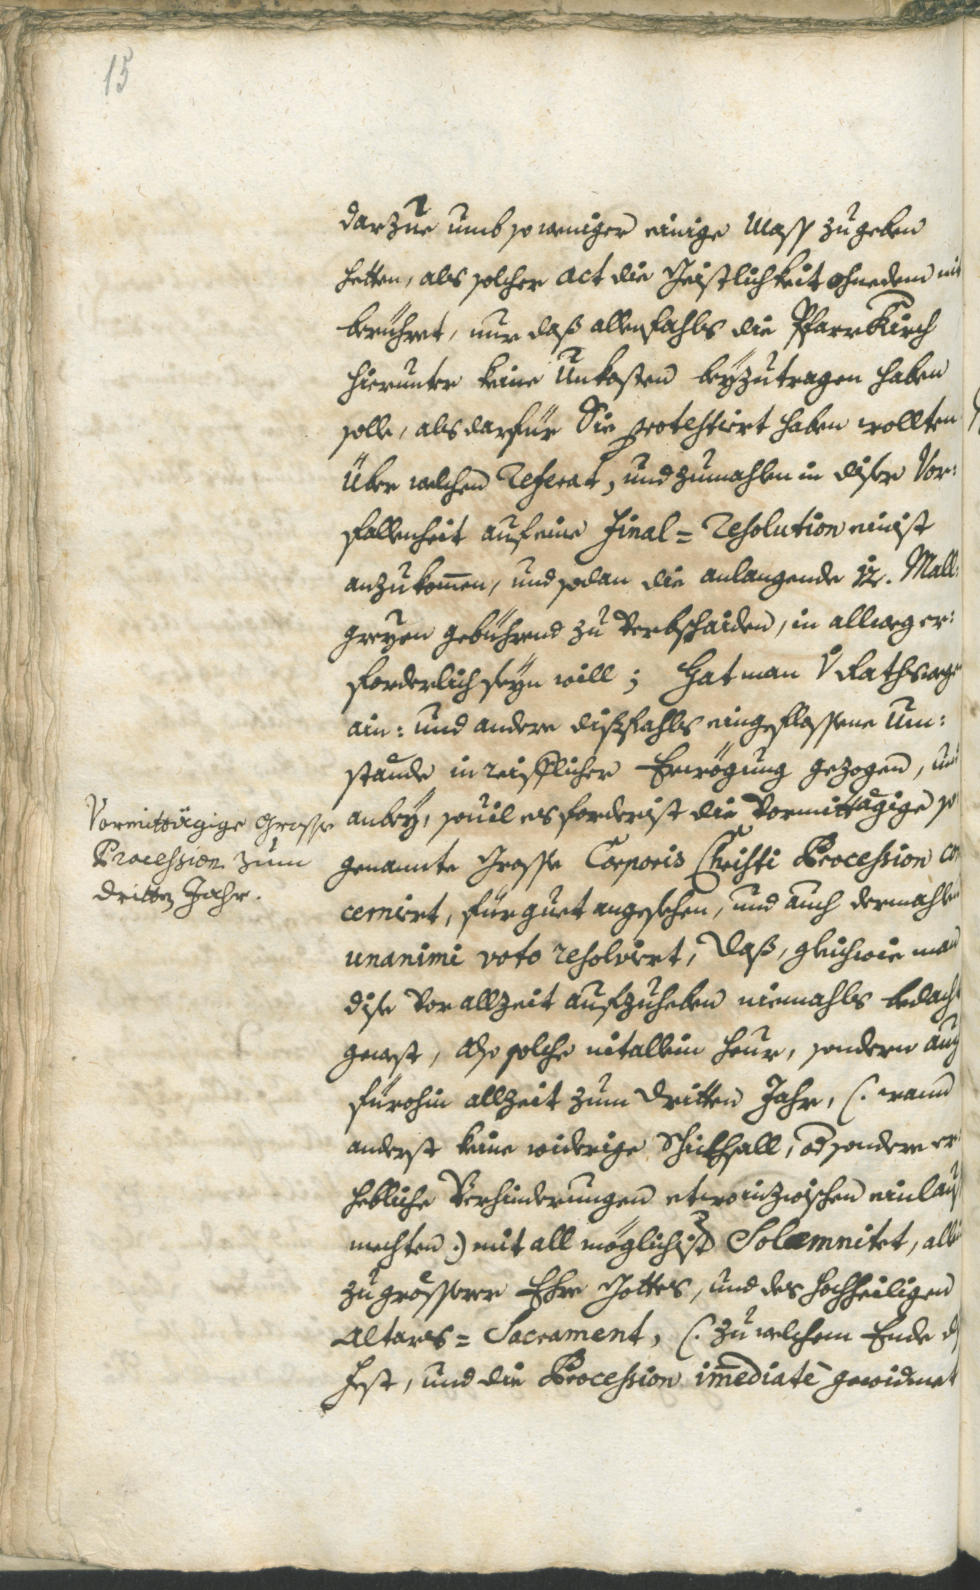 15
darzue umb so weniger einige Mass zu geben
hetten, als solcher Act die Geistlichkeit ohnedem nit
berühret, nur daß allenfahls die PfarrKirch
hierunter keine Unkosten beyzutragen haben
solle, als darfür Sie protestiert haben wollten
Über welchen Referat, und zumahlen in diser Vor:
fallenheit auf eine Final= Resolution
anzukom̄en, und sodan die anlangende Mall:
greyen gebührend zu Verbschaiden, in allweg er:
forderlich seyn will; Hat man Rathswegen
ain: und andere dißfahls eingeflossene Um:
stände in reifflicher Erwögung gezogen, und
anbey, souil es forderist die Vormittägige so
genannte Grosse Corporis Christi Procession con
cerniert, für guet angesehen, und auch dermahlen
unanimi voto resolviert, daß, gleichwie man
dise Vor allzeit aufzuheben niemahls bedacht
gewest, also solche nit allein heur, sondern auch
fürohin allzeit zum dritten Jahr, (: wann
anderst keine widerige Schickhsall, od sondere er
hebliche Verhinderungen etwo inzwischen einlauf
mechten :) mit all möglichist Solemnitet, all
zu grösserer Ehre Gottes, und des hochheiligen
Altars= Sacrament, (: zu welchem Ende d
Fest, und die Procession im̄ediatè gewidmet
Vormittägige Grosse
Procession zum
dritten Jahr.